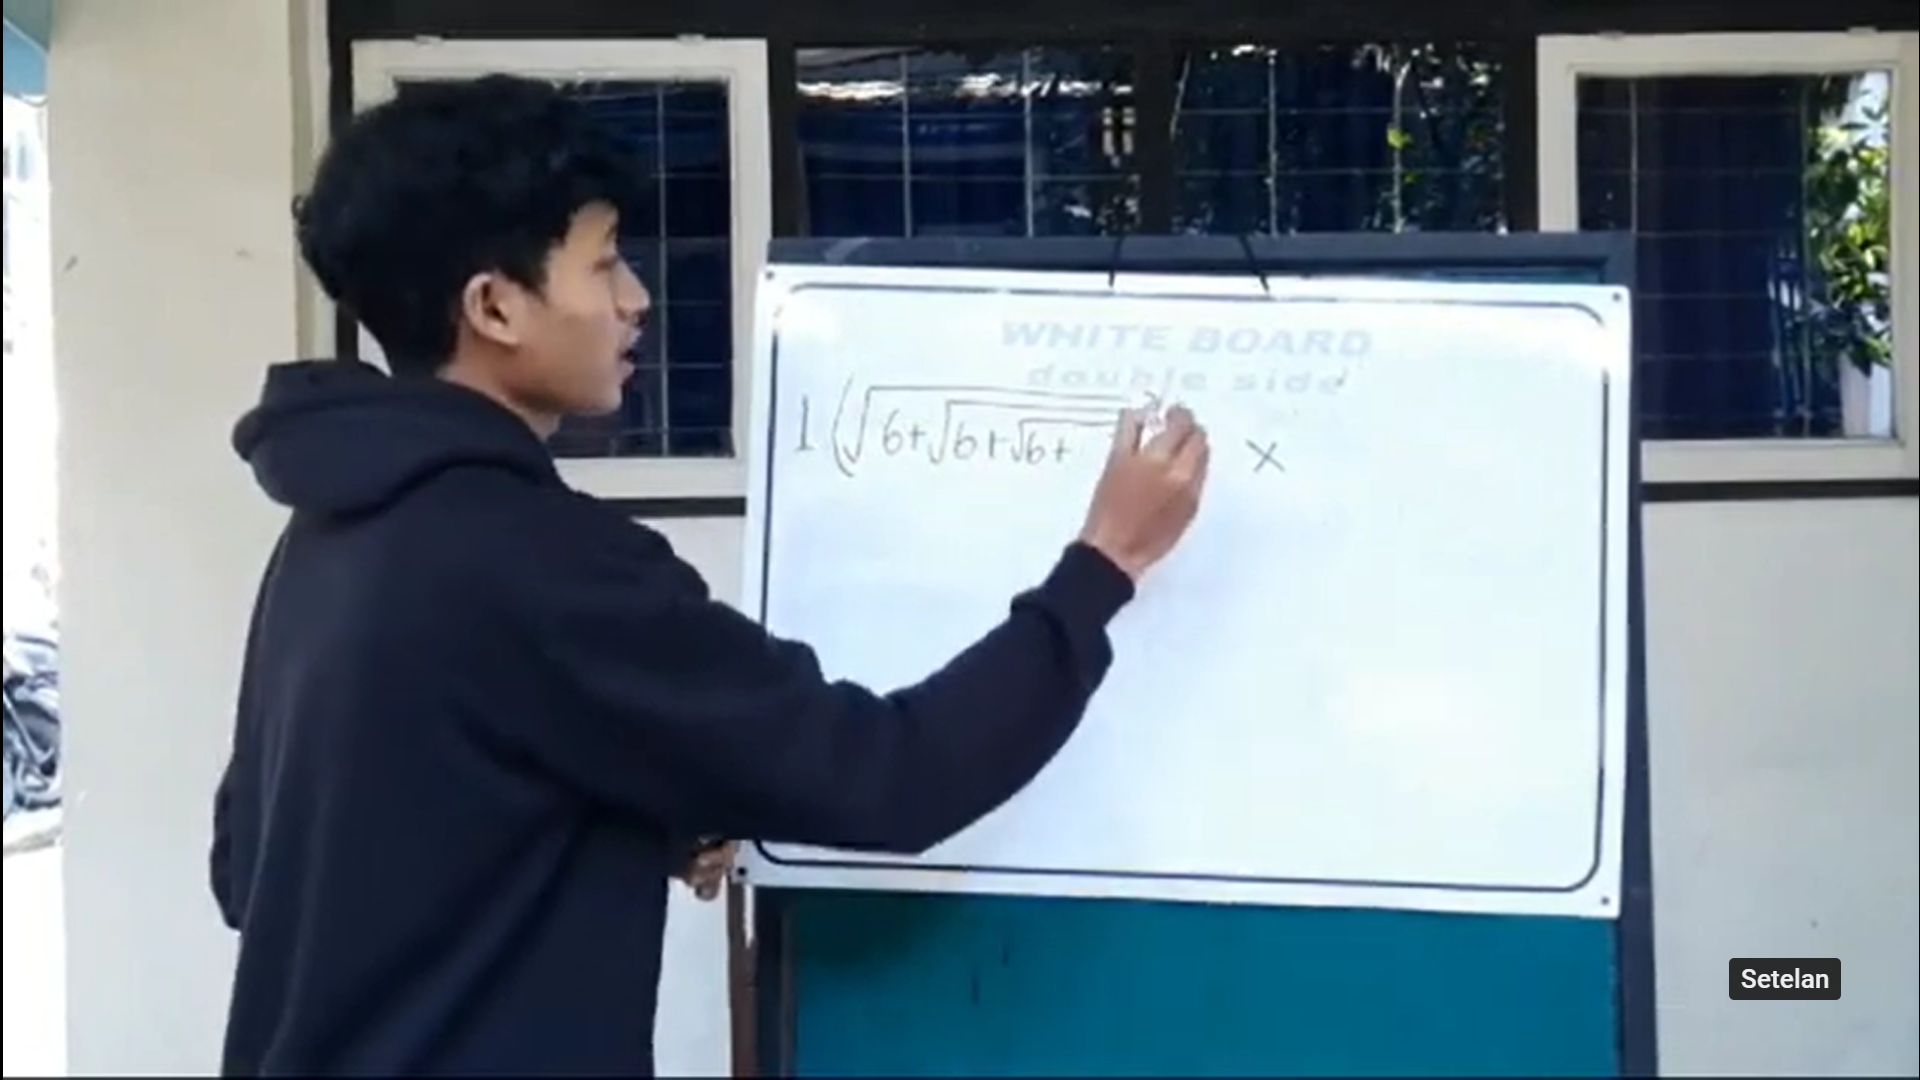 WHITE BOARD
double side
1 (√6+√6+√6+ x
Setelan